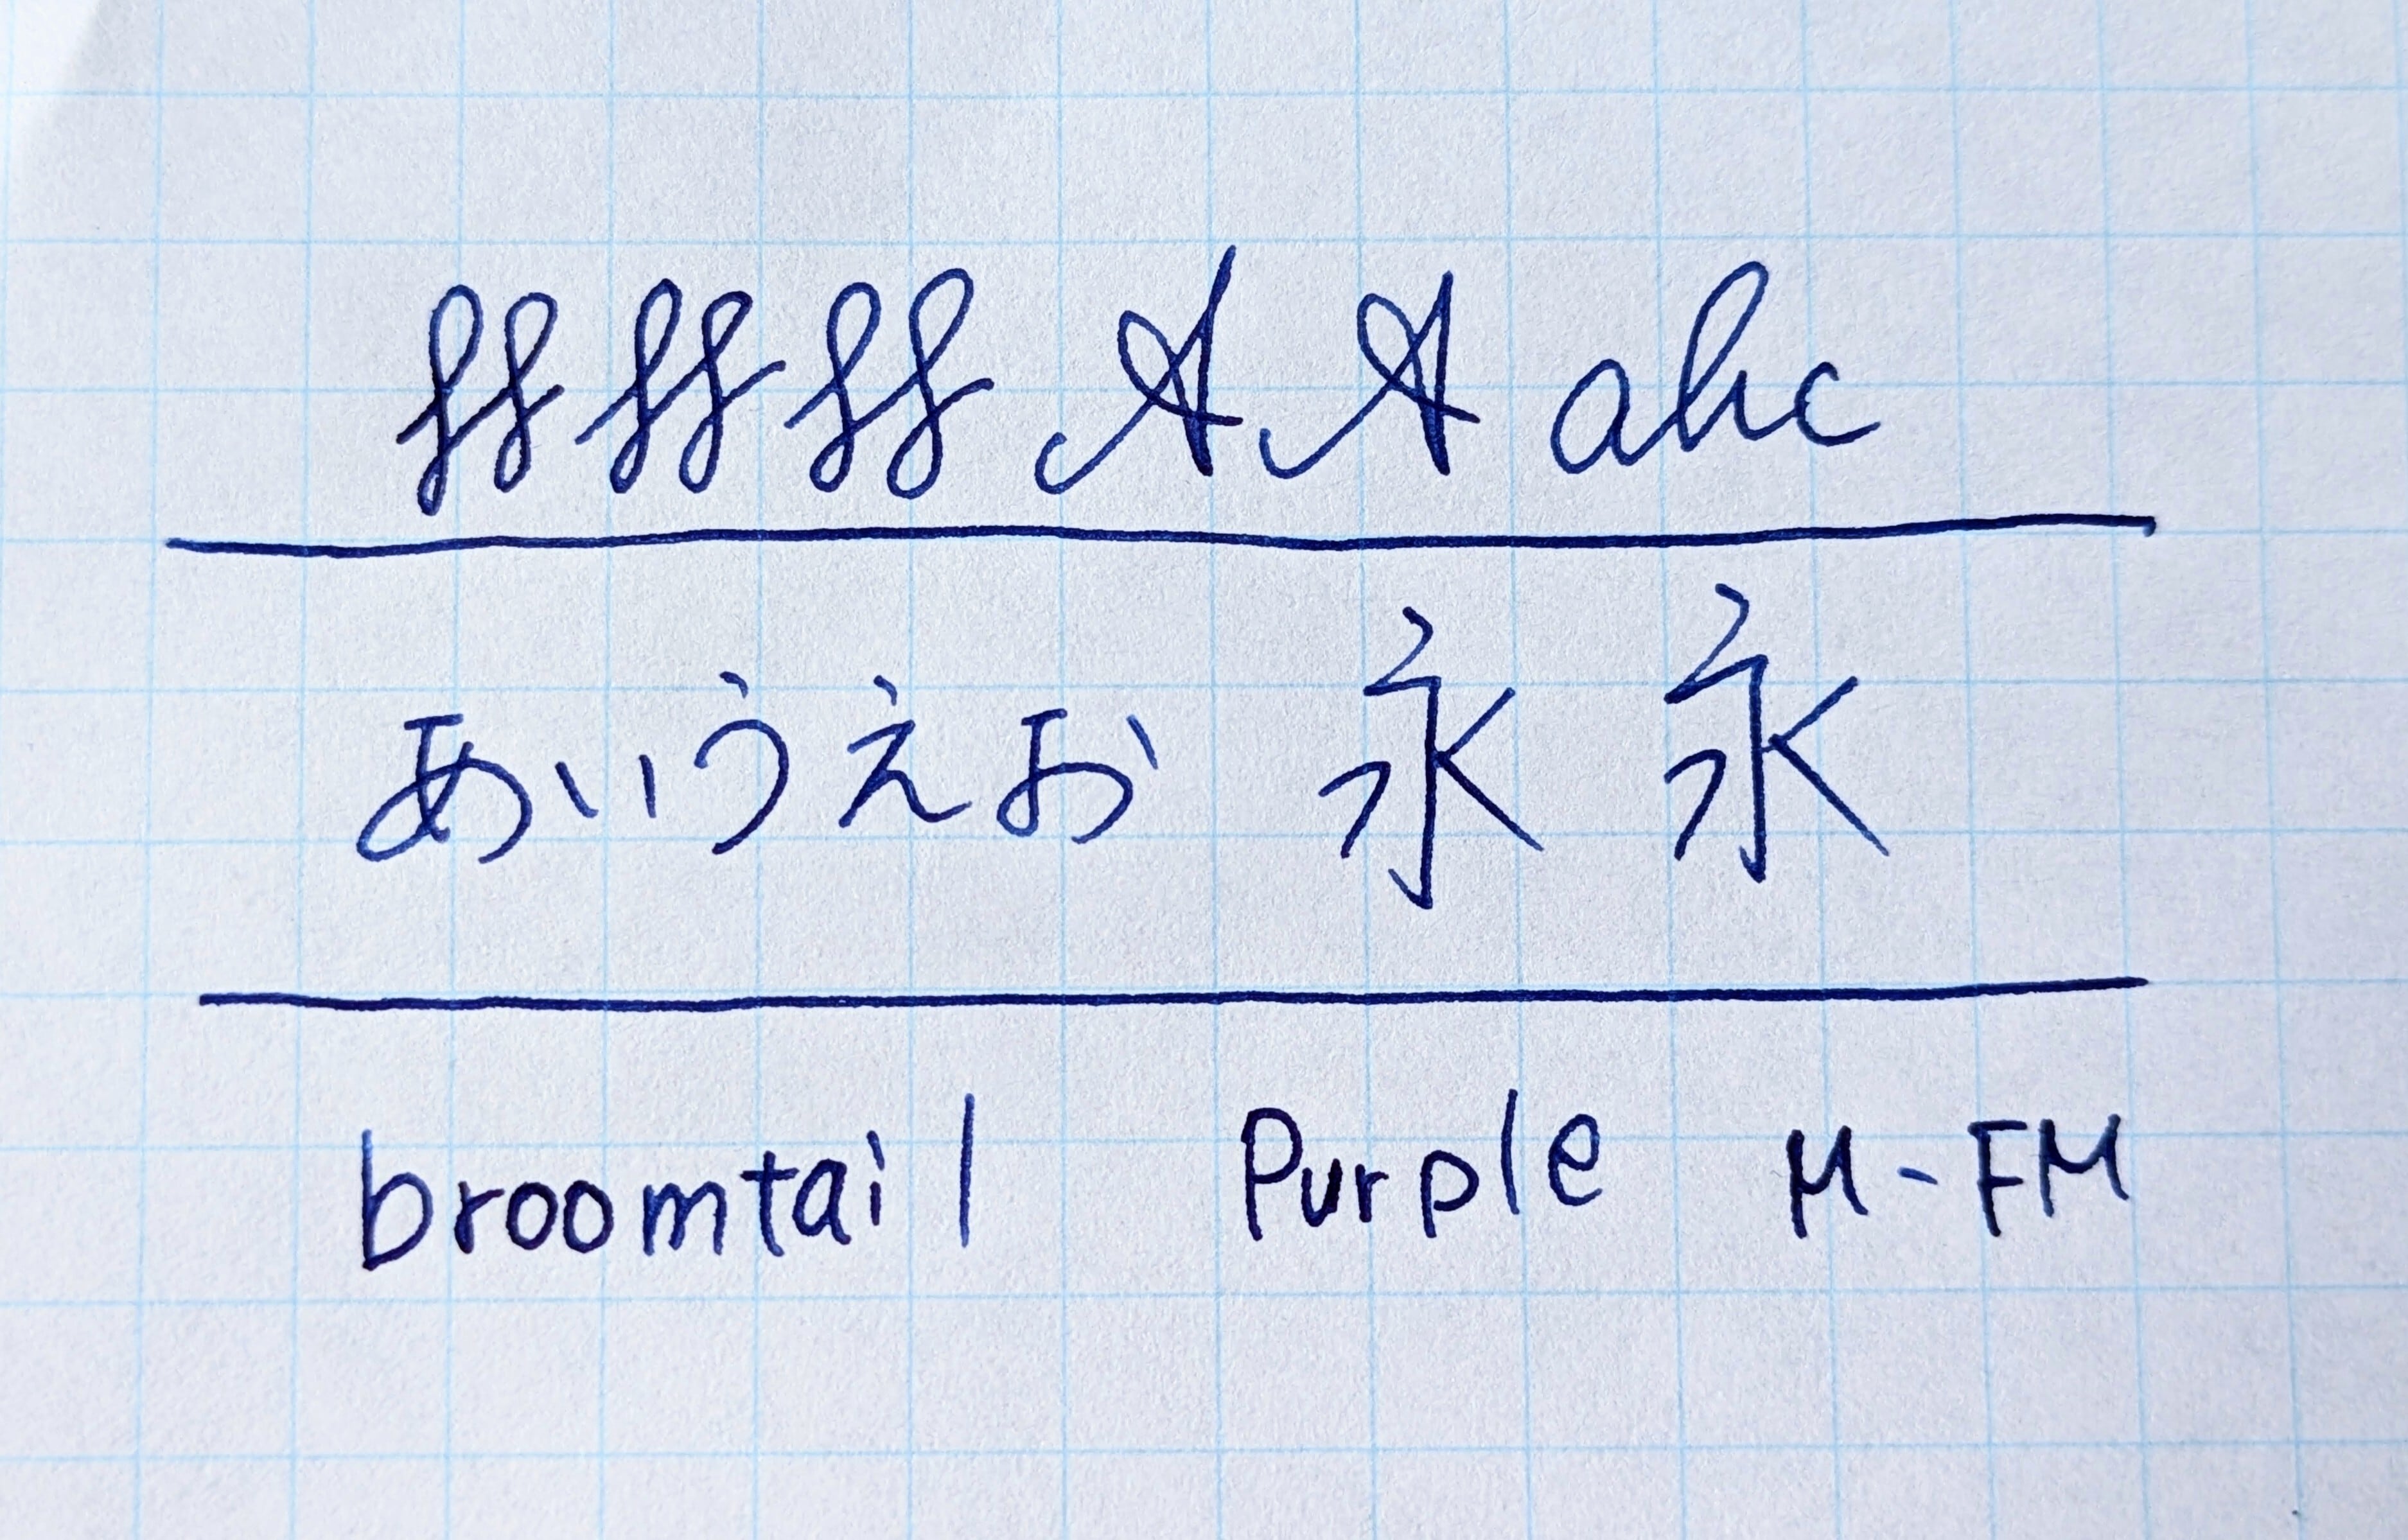 ff ff ff A A abc
あいうえお 永 永
broomtail Purple M-FM